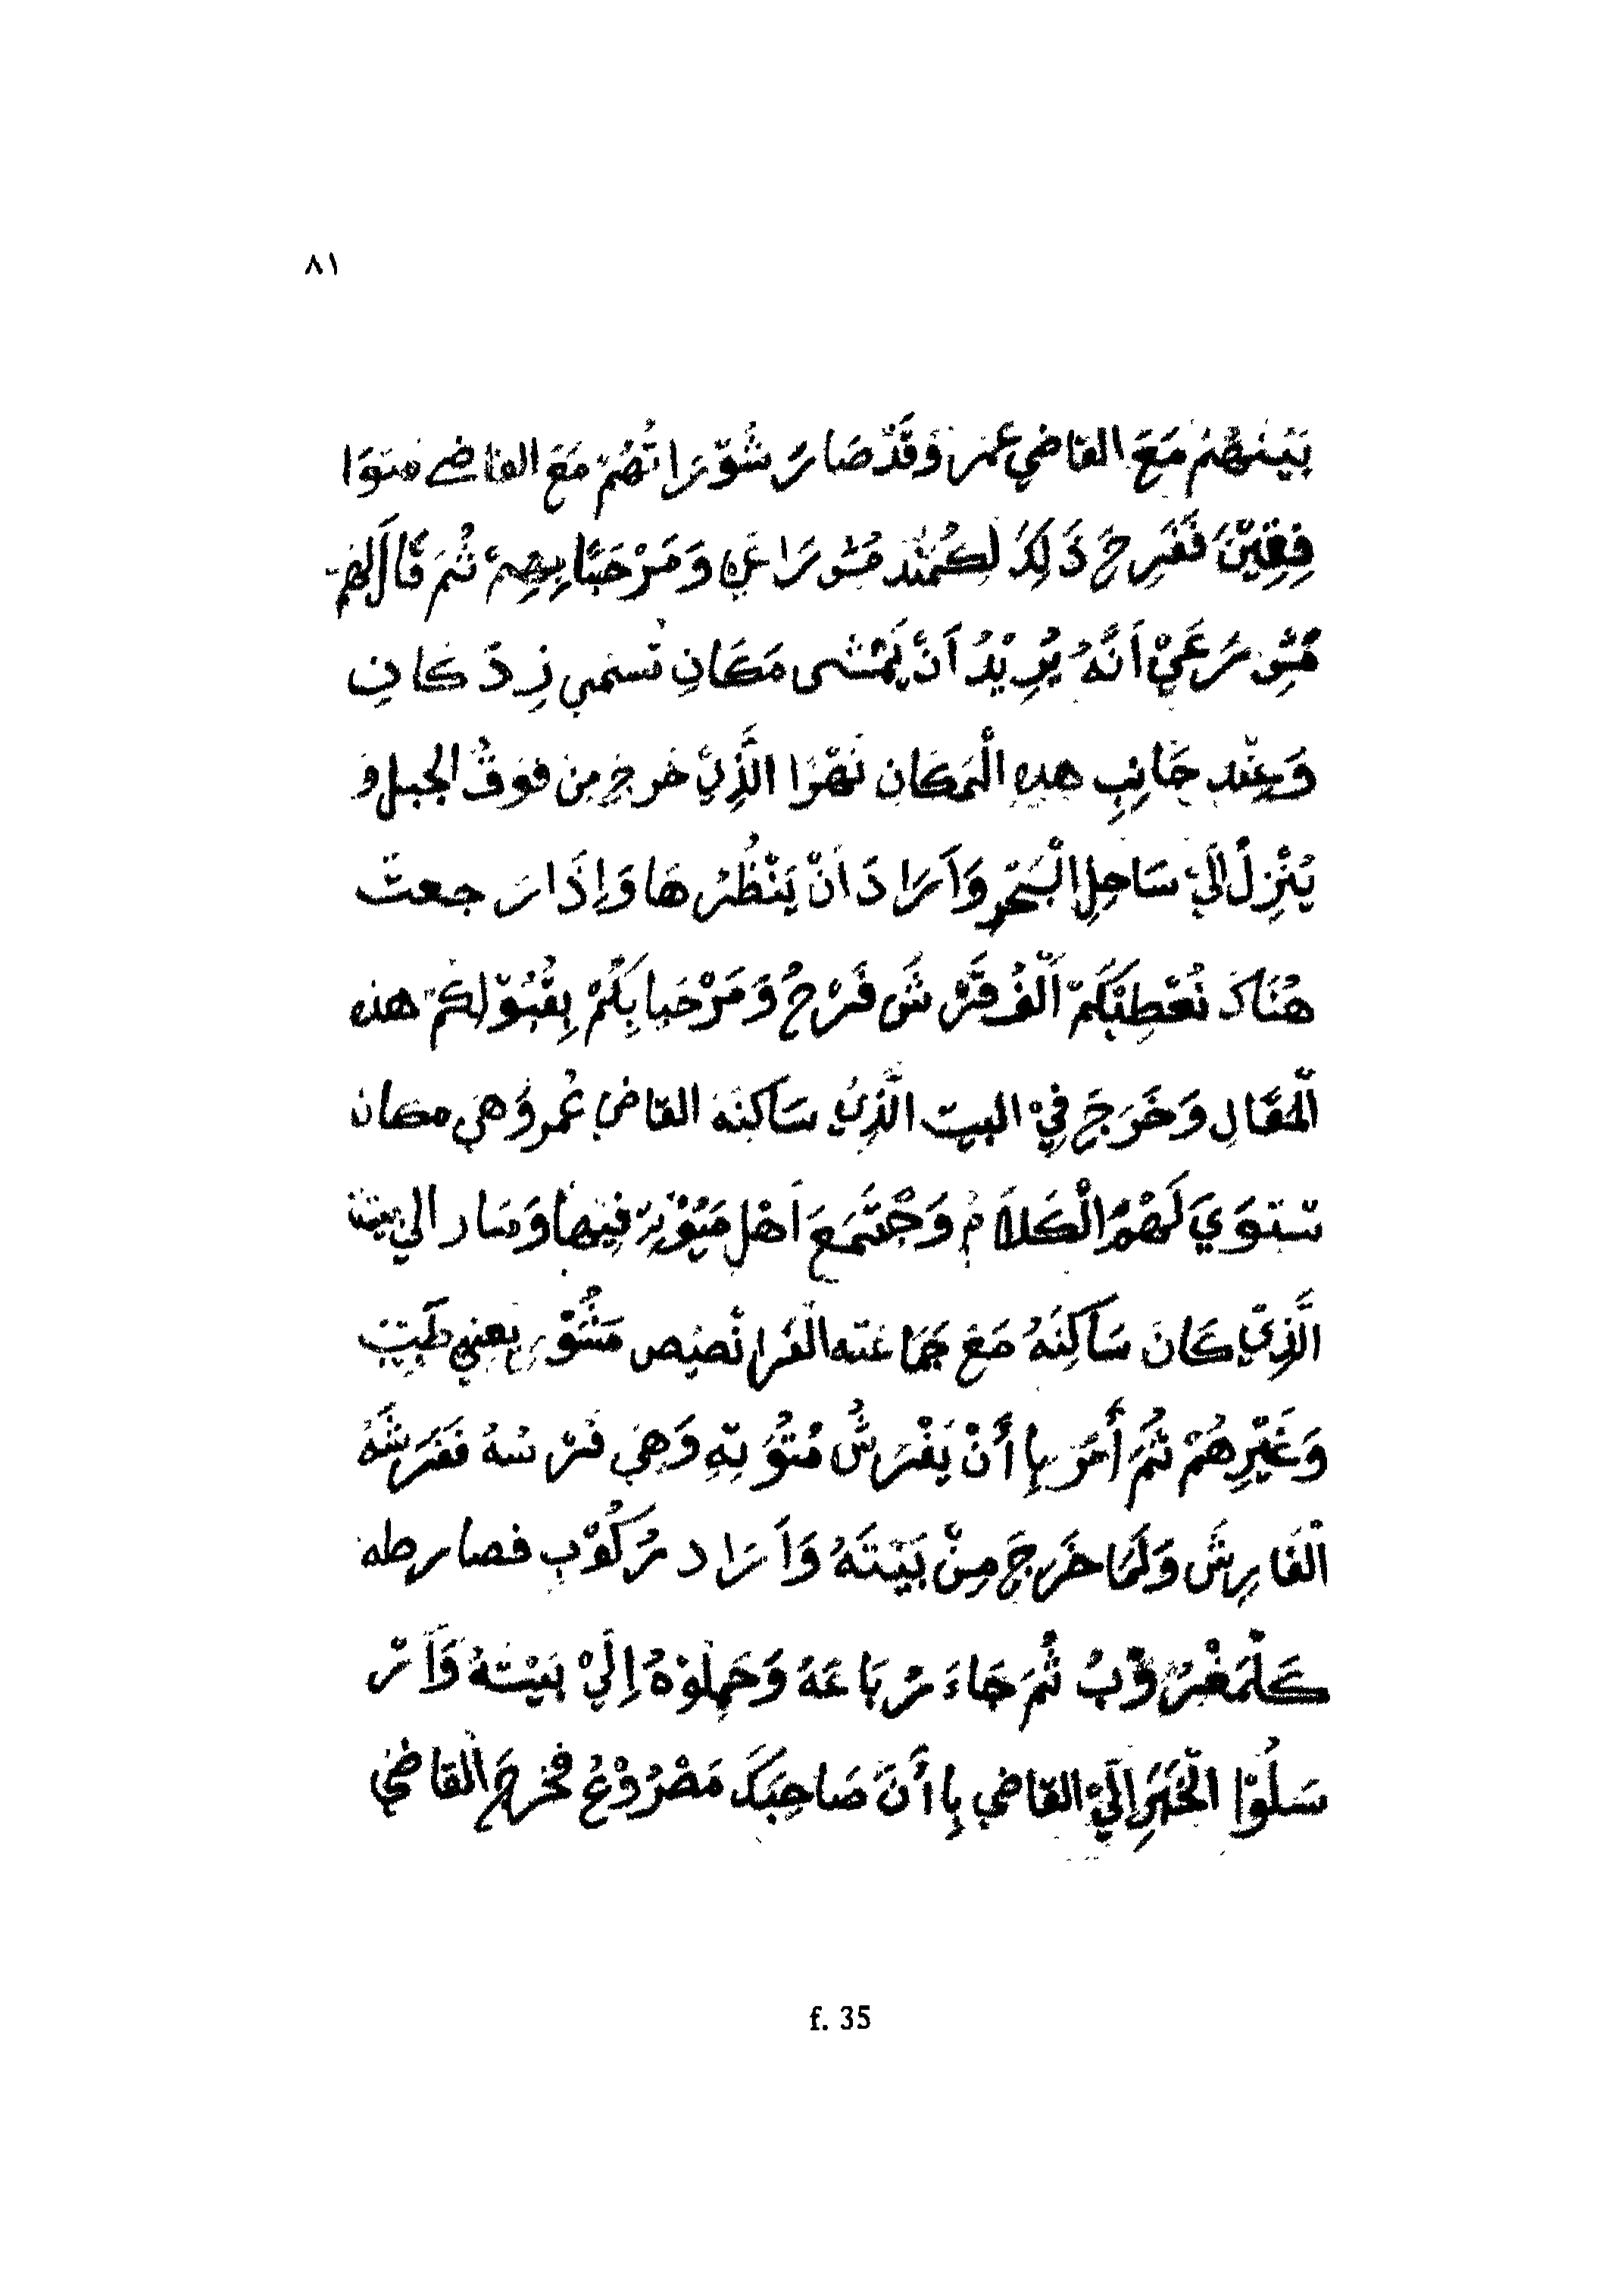 ٨١
بَيْنَهُمْ مَعَ القاضي عمر وَقَدْ صَارَ شُوْرَاتُهُمْ مَعَ القاضي متوَا
فِقِيْنَ فَفَرِحَ ذَلِكَ لَكُمَنْدَ مُسُرَا عَلي وَمَرْحَبًا بِهِمْ ثُمَ قَالَ لَهُمْ
مُسُرَ عَلَيْ اَنَّهُ يُرِيْدُ اَنْ يَمْشَى مَكَانِ تُسَمي زِدَكَانِ
وَعِنْدِ جَانِبِ هذِهِ الْمَكَانِ نَهْرًا الَّذِيْ خرج مِنْ فَوْقُ الجبل وَ
يُنْزِلُ اَلَيْ سَاحِلِ الْبَحْرِ وَاَرَادَ اَنْ يَنْظُرُهَا وَاِذَا رَجعتْ
هُنَاكَ نُعْطِيْكُمْ اَلْفُ قَرْشَ فَرْحُ وَمَرْحَبا بِكُمْ بِقُبُوْلِكُمْ هذه
الْمَقَالِ وَخَرَجَ فِيْ البيت الَّذِيْ سَاكِنَهُ القاضي عُمر وَهِيَ مكان
سْتوَيَ لَهُمُ الْكَلَامُ وَجْتَمَعَ اَهْلِ مَيُوْتِهِ فِيْهَا وَسَار الي بيته
الَّذِيْ كَانَ سَاكِنَهُ مَعْ جَمَاعَته الْفَرانْصِيْص مَسُوْرع يعني طَبِيْبْ
وَغَيْرِهُمْ ثُمَّ أَمَرَ بِا أَنْ يَفْرَشُ مُتُوْبِهِ وَهِيَ فَرْسُهُ فَفَرَشَهُ
الْفَارِشَ وَلَمَا خَرَجَ مِنْ بَيْتَهُ وَاَرَاد رُكُوْبِ فصارطه
كَلْمَغْرُوْبُ ثُمَ جَاءَ رُبَاعَهُ وَحَمِلُوْهُ اِلَيْ بَيْتهُ وَاَرْ
سَلُوْا الْخَبَرِ اِلَيْ القاضي بِا أَنَ صَاحِبَكَ مَصْرُوْعُ فخرجَ الْقاضي
f. 35